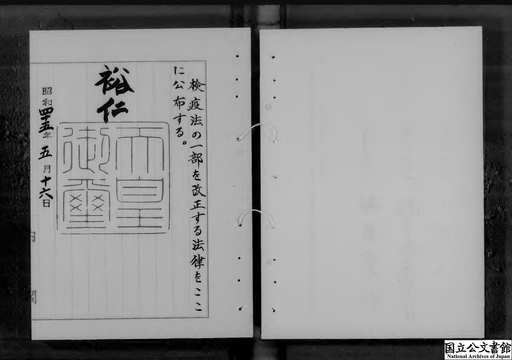 検疫法の一部を改正する法律をここ
に公布する。
裕仁
天皇
御璽
昭和四十五年五月十六日
内閣
国立公文書館
National Archives of Japan